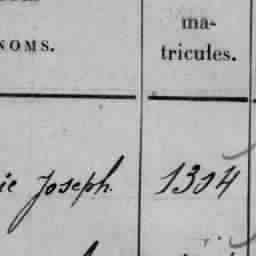 NOMS.
ma-
tricules.
ie Joseph. 1304